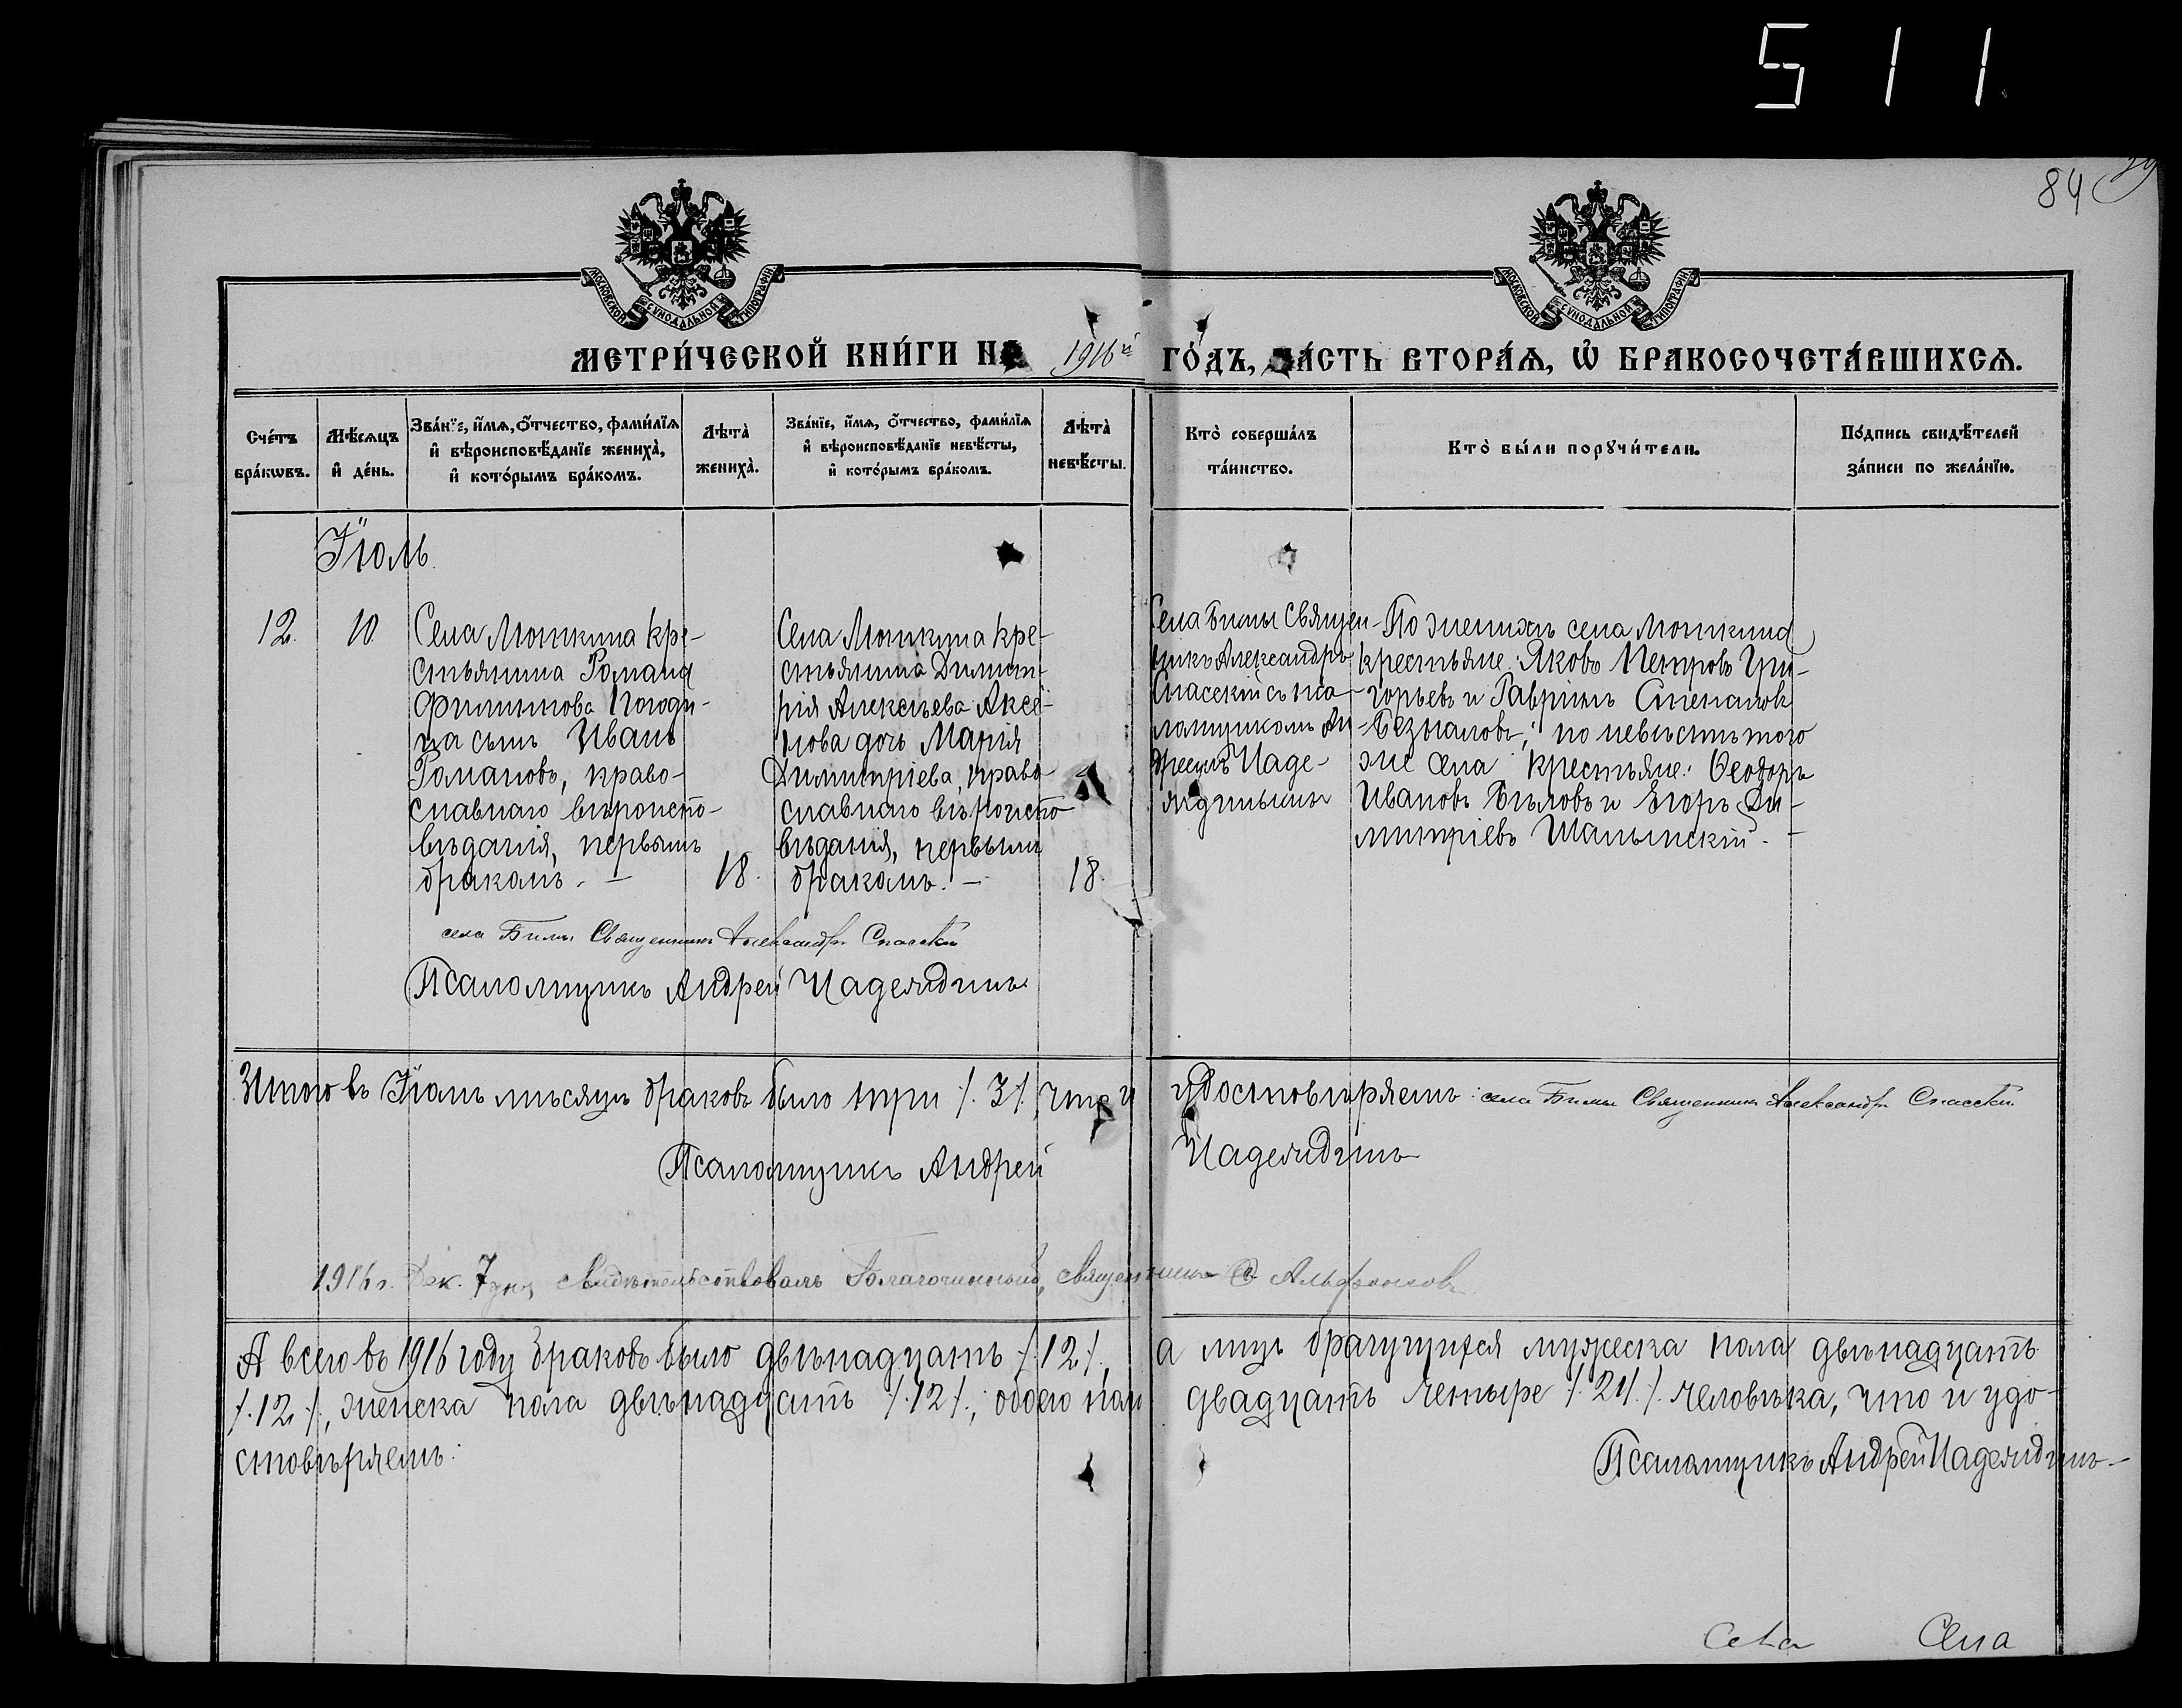 511
84
МОСКОВСКОЙ СѴНОДАЛЬНОЙ ТИПОГРАФІИ
МОСКОВСКОЙ СѴНОДАЛЬНОЙ ТИПОГРАФІИ
МЕТРИ́ЧЕСКОЙ КНИ́ГИ НА 1916й ГО́ДЪ, ЧА́СТЬ ВТОРА́Ѧ, Ѽ БРАКОСОЧЕТА́ВШИХСѦ.
Сче́тъ бра́кѡвъ.
Мѣ́сѧцъ и҆ де́нь.
Зва́нїе, и҆́мѧ, о҆́тчество, фами́лїѧ и҆ вѣроисповѣ́данїе жениха̀, и҆ кото́рымъ бра́комъ.
Лѣта̀ жениха̀.
Зва́нїе, и҆́мѧ, о҆́тчество, фами́лїѧ и҆ вѣроисповѣ́данїе невѣ́сты, и҆ кото́рымъ бра́комъ.
Лѣта̀ невѣ́сты.
Кто̀ соверша́лъ та́инство.
Кто̀ бы́ли порꙋчи́тели.
По́дпись свидѣ́телей за́писи по жела́нїю.
Іюль.
12.
10
Села Мошкина кре-
стьянина Романа
Филиппова Погоди-
на сынъ Иванъ
Романовъ, право-
славнаго вѣроиспо-
вѣданія, первымъ
бракомъ. —
18.
Села Мошкина кре-
стьянина Димит-
рія Алексѣева Аксе-
нова дочь Марія
Димитріева, право-
славнаго вѣроиспо-
вѣданія, первымъ
бракомъ. —
18.
Села Бимы Священ-
никъ Александръ
Спасскій съ пса-
ломщикомъ Ан-
дреемъ Наде-
ждинымъ
По женихѣ села Мошкина
крестьяне: Яковъ Петровъ Гри-
горьевъ и Гавріилъ Степановъ
Безпаловъ; по невѣстѣ того
же села крестьяне: Ѳеодоръ
Ивановъ Бѣловъ и Егоръ Ди-
митріевъ Шалынскій. —
села Бимы Священникъ Александръ Спасскій
Псаломщикъ Андрей Надеждинъ
Итого въ Іюлѣ мѣсяцѣ браковъ было три /.3/., что и удостовѣряемъ: села Бимы Священникъ Александръ Спасскій
Псаломщикъ Андрей Надеждинъ
1916 г. Дек. 7 дня свидѣтельствовалъ Благочинный, священникъ
А всего въ 1916 году браковъ было двѣнадцать /.12/., а лицъ брачущихся мужеска пола двѣнадцать
/.12./., женска пола двѣнадцать /.12/., обоего пола двадцать четыре /.24./. человѣка, что и удо-
стовѣряемъ:
Псаломщикъ Андрей Надеждинъ
Села Села